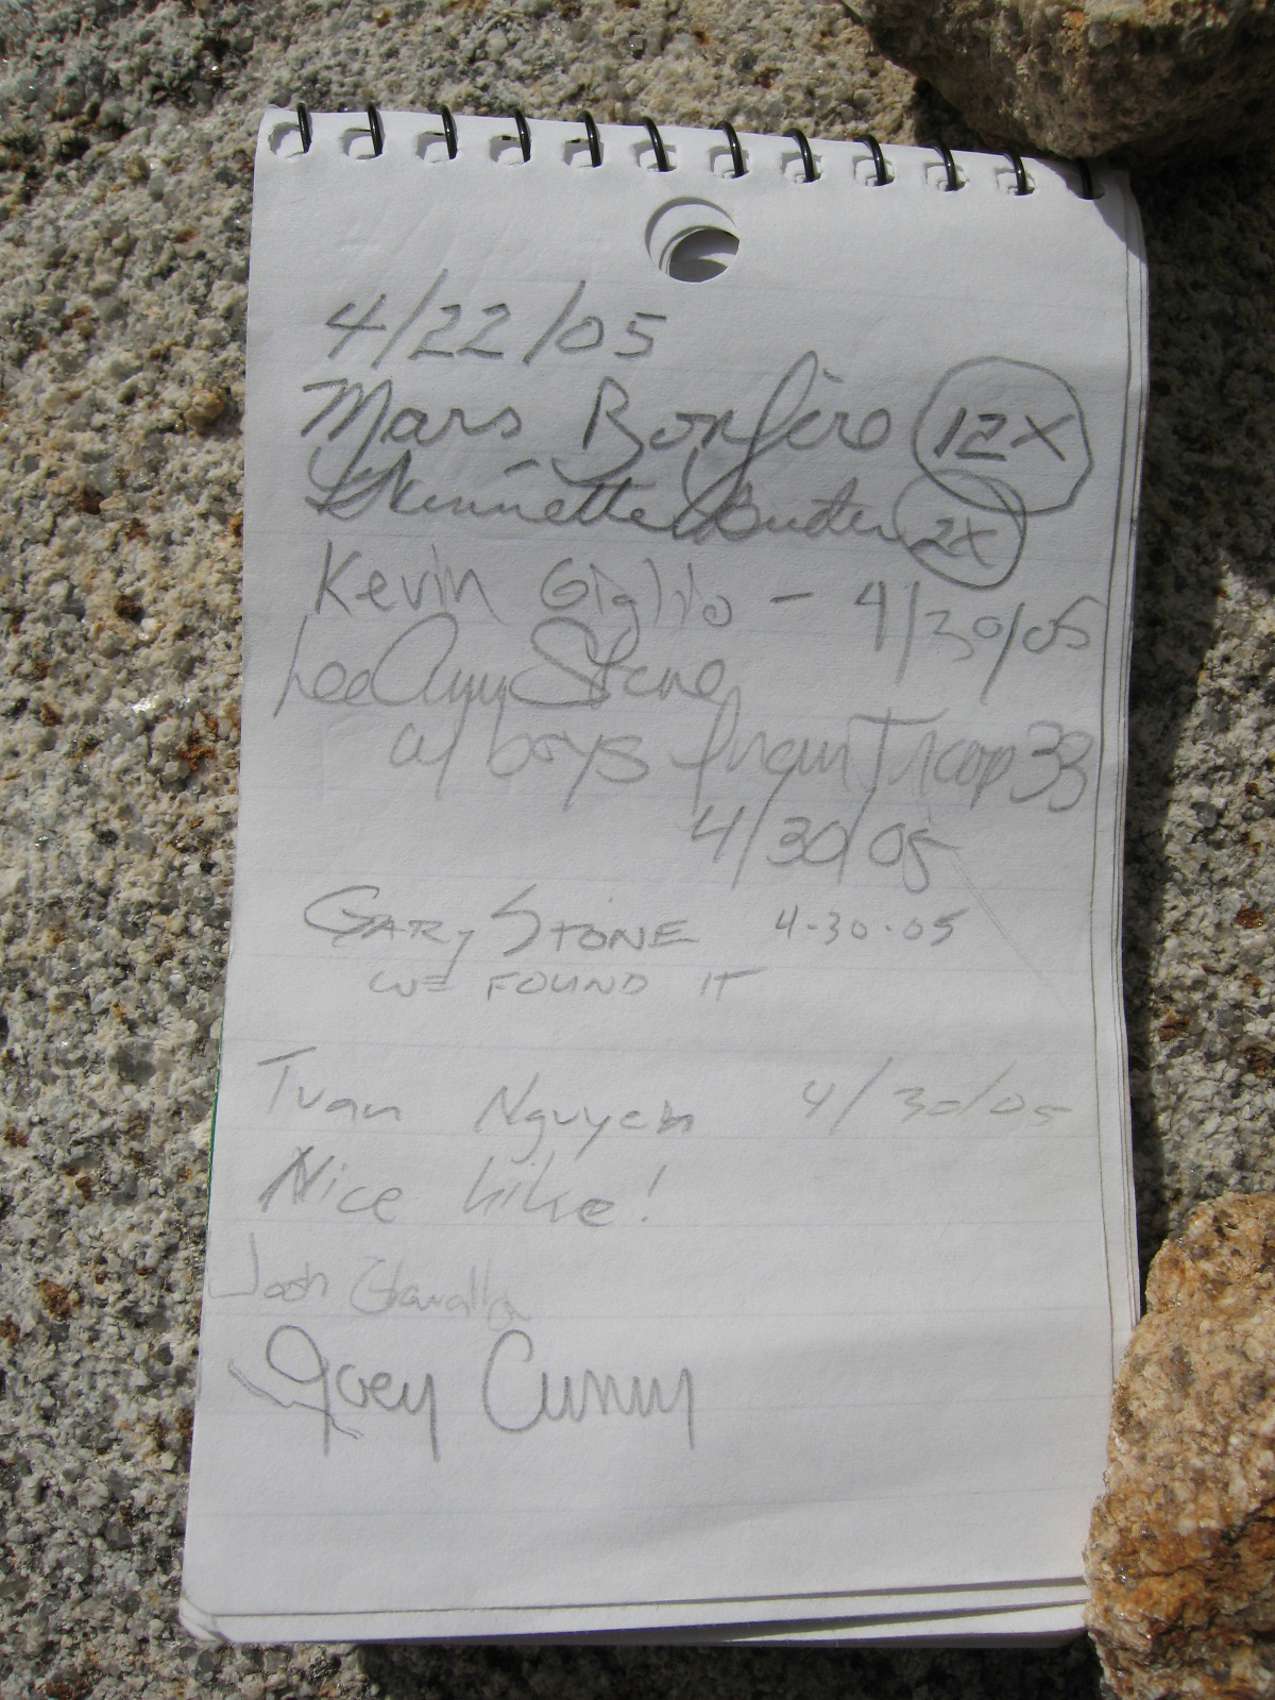 4/22/05
Mars Bonfire 12X
2X
Kevin Giglio - 4/30/05
LeeAnn Stone
w/ boys from Troop 33
4/30/05
GARy STONE 4-30-05
WE FOUND IT
Tuan Nguyen 4/30/05
Nice hike!
Josh
Joey